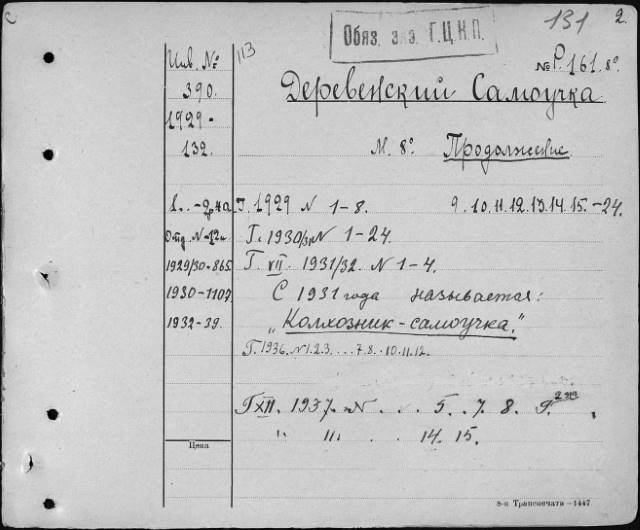 С
131 2.
Обяз. экз. Г.Ц.К.П.
Инв. №
113
№ Р.161.8°
390.
Деревенский Самоучка
1929-
132.
М. 8° Продолжение
Г. 1929 N 1-8. 9.10.11.12.13.14.15.-24.
Г. 1930/31 N 1-24.
1929/30-865.
Г. VII. 1931/32. N 1-4.
1930-1107
С 1931 года называется:
1932-39.
"Колхозник-самоучка."
Г. 1936. N 1.2.3....7.8..10.11.12.
Г XII. 1937. N . . 5. . 7. 8. Р.
" 11. . 14. 15.
Цена
8-я Транспечати-1447.